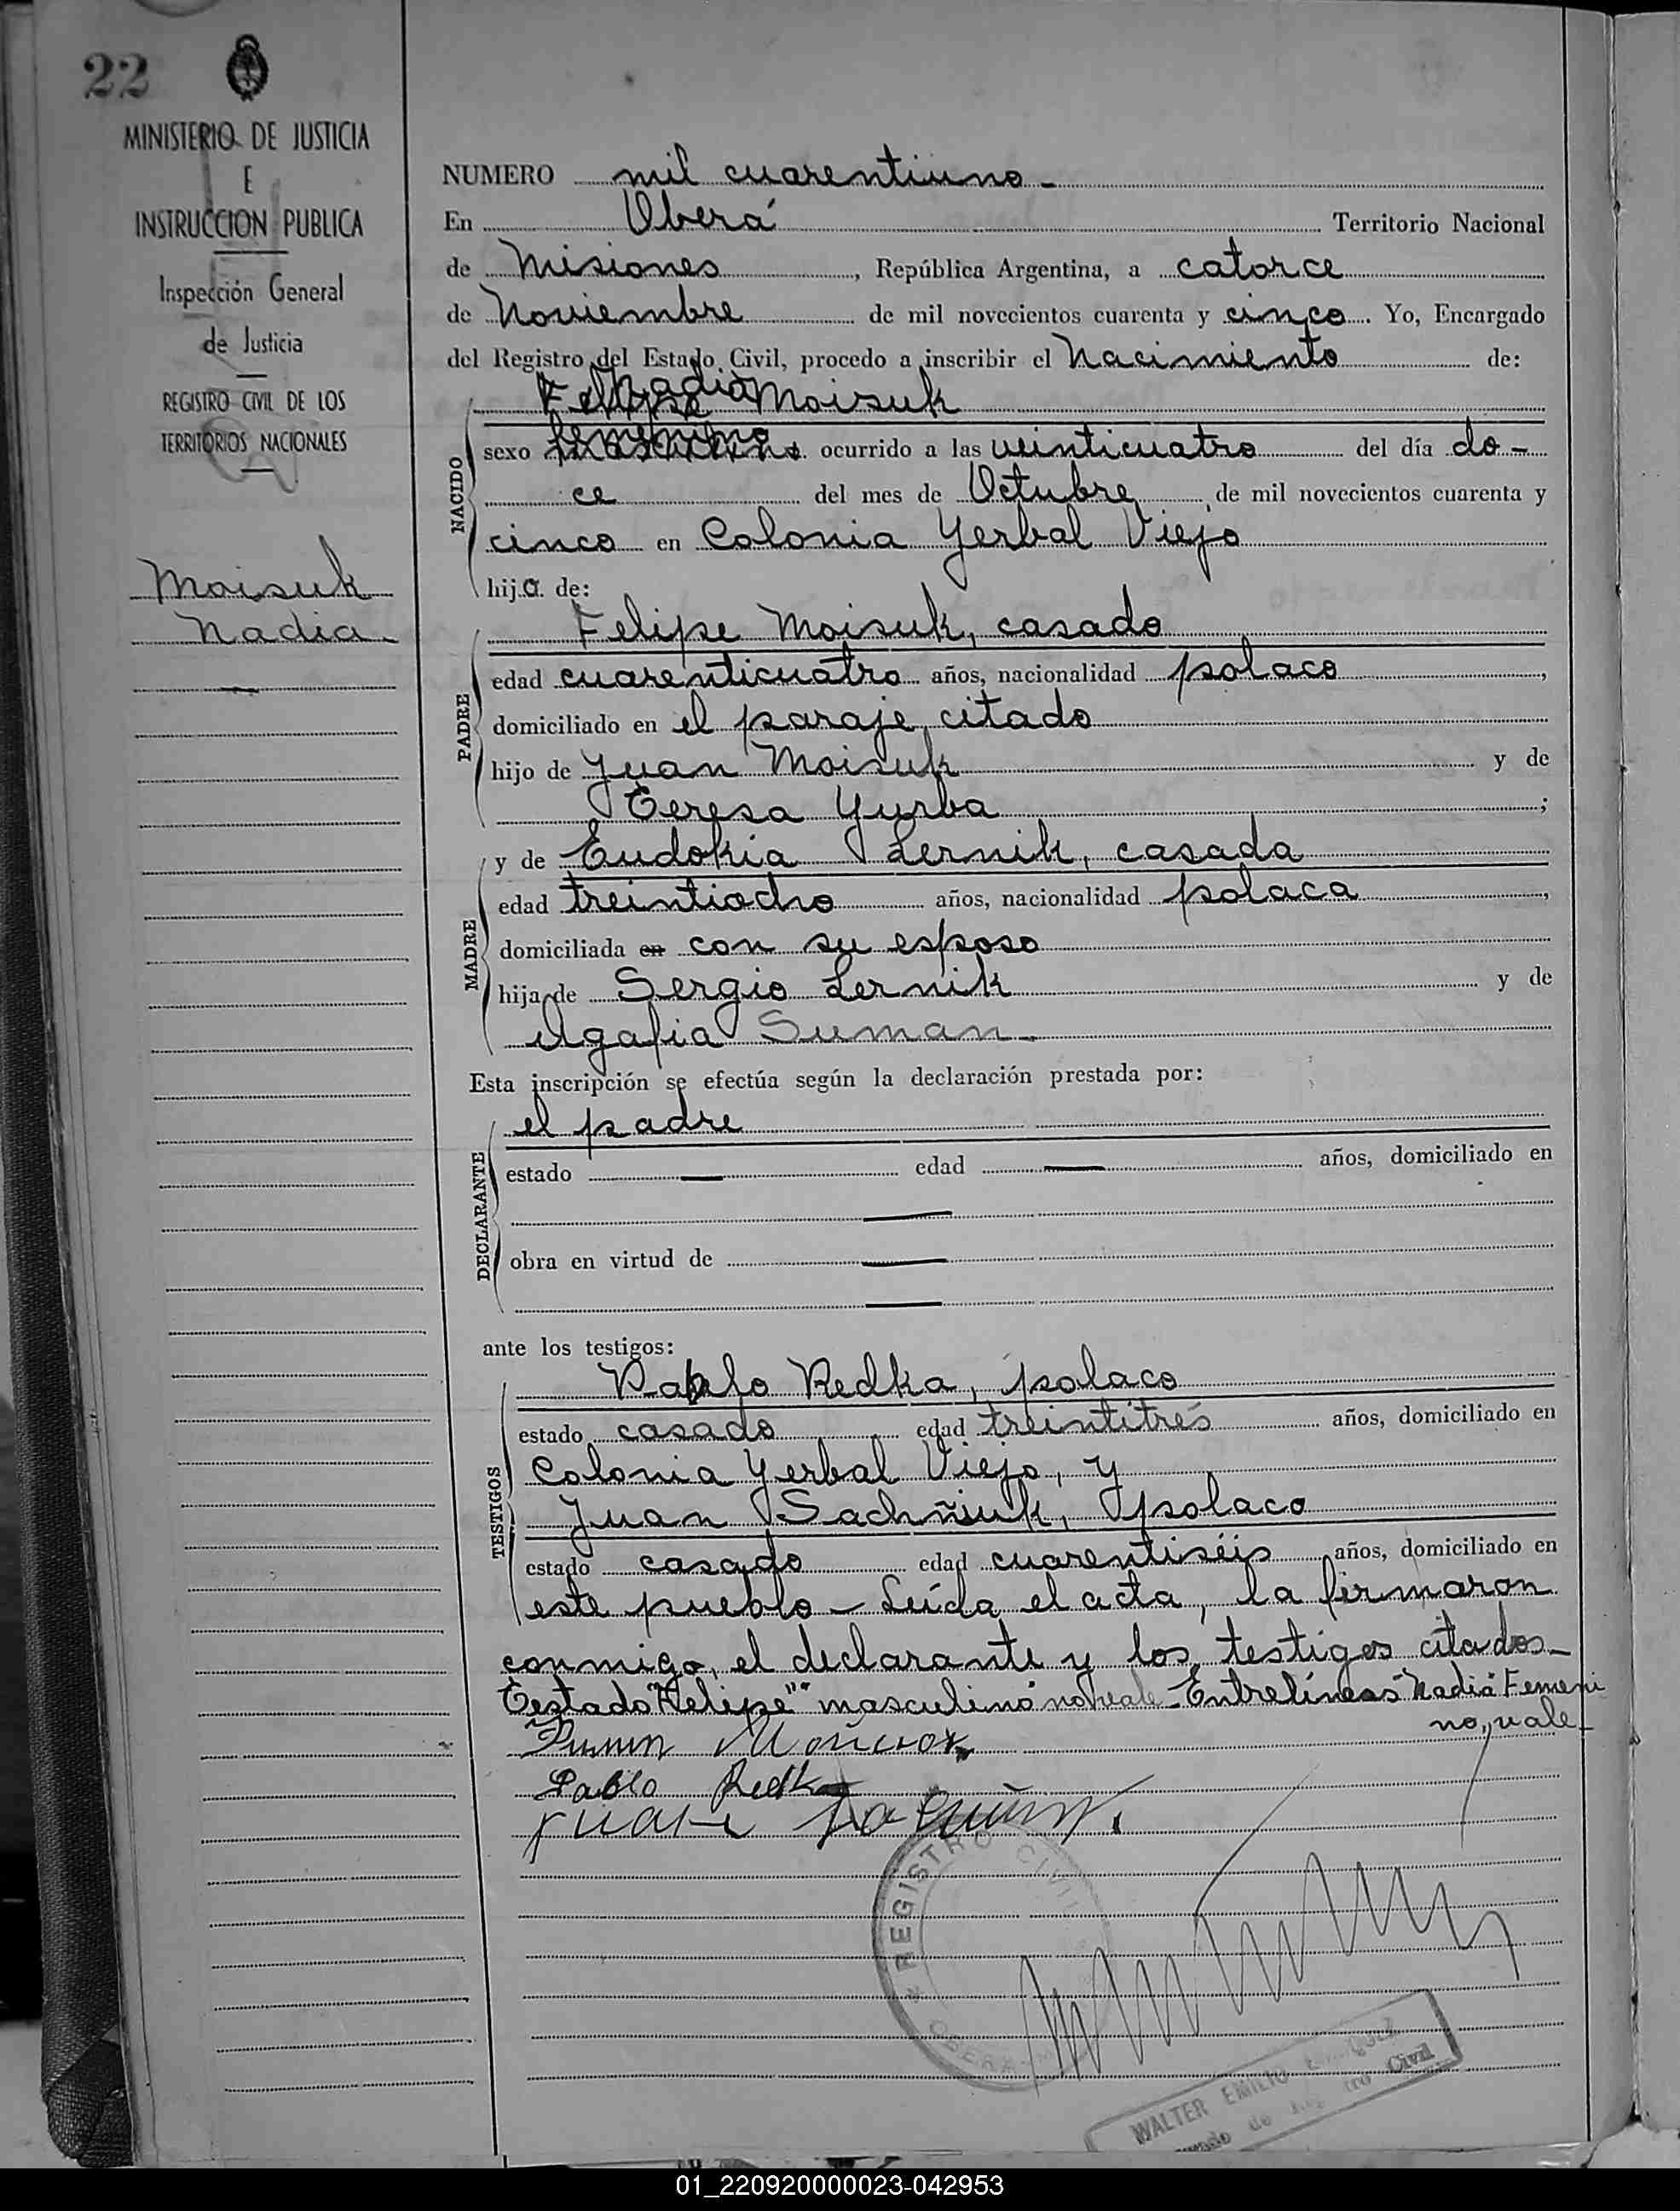 22
MINISTERIO DE JUSTICIA
E
INSTRUCCION PUBLICA
Inspección General
de Justicia
REGISTRO CIVIL DE LOS
TERRITORIOS NACIONALES
Moisuk
Nadia
NUMERO mil cuarentiuno -
En Oberá Territorio Nacional
de Misiones, República Argentina, a catorce
de Noviembre de mil novecientos cuarenta y cinco. Yo, Encargado
del Registro del Estado Civil, procedo a inscribir el Nacimiento de:
Nadia
Felipe Moisuk
femenino
sexo masculino ocurrido a las veinticuatro del día do-
ce del mes de Octubre de mil novecientos cuarenta y
cinco en Colonia Yerbal Viejo
hija de:
NACIDO
Felipe Moisuk, casado
edad cuarenticuatro años, nacionalidad polaco,
domiciliado en el paraje citado
hijo de Juan Moisuk y de
Teresa Yurba;
PADRE
y de Eudokia Lernik, casada
edad treintiocho años, nacionalidad polaca,
domiciliada en con su esposo
hija de Sergio Lernik y de
Agafia Suman-
MADRE
Esta inscripción se efectúa según la declaración prestada por:
el padre
estado — edad — años, domiciliado en
—
obra en virtud de —
—
DECLARANTE
ante los testigos:
Pablo Redka, polaco
estado casado edad treintitrés años, domiciliado en
Colonia Yerbal Viejo, y
Juan Sachñiuk, polaco
estado casado edad cuarentiséis años, domiciliado en
TESTIGOS
este pueblo - Leída el acta, la firmaron
conmigo, el declarante y los testigos citados-
Testado "Felipe" "masculino" no vale - Entrelíneas "Nadia" Femeni
no, vale-
Pablo Redka
REGISTRO CIVIL
OBERÁ
WALTER EMILIO
Civil
01_220920000023-042953